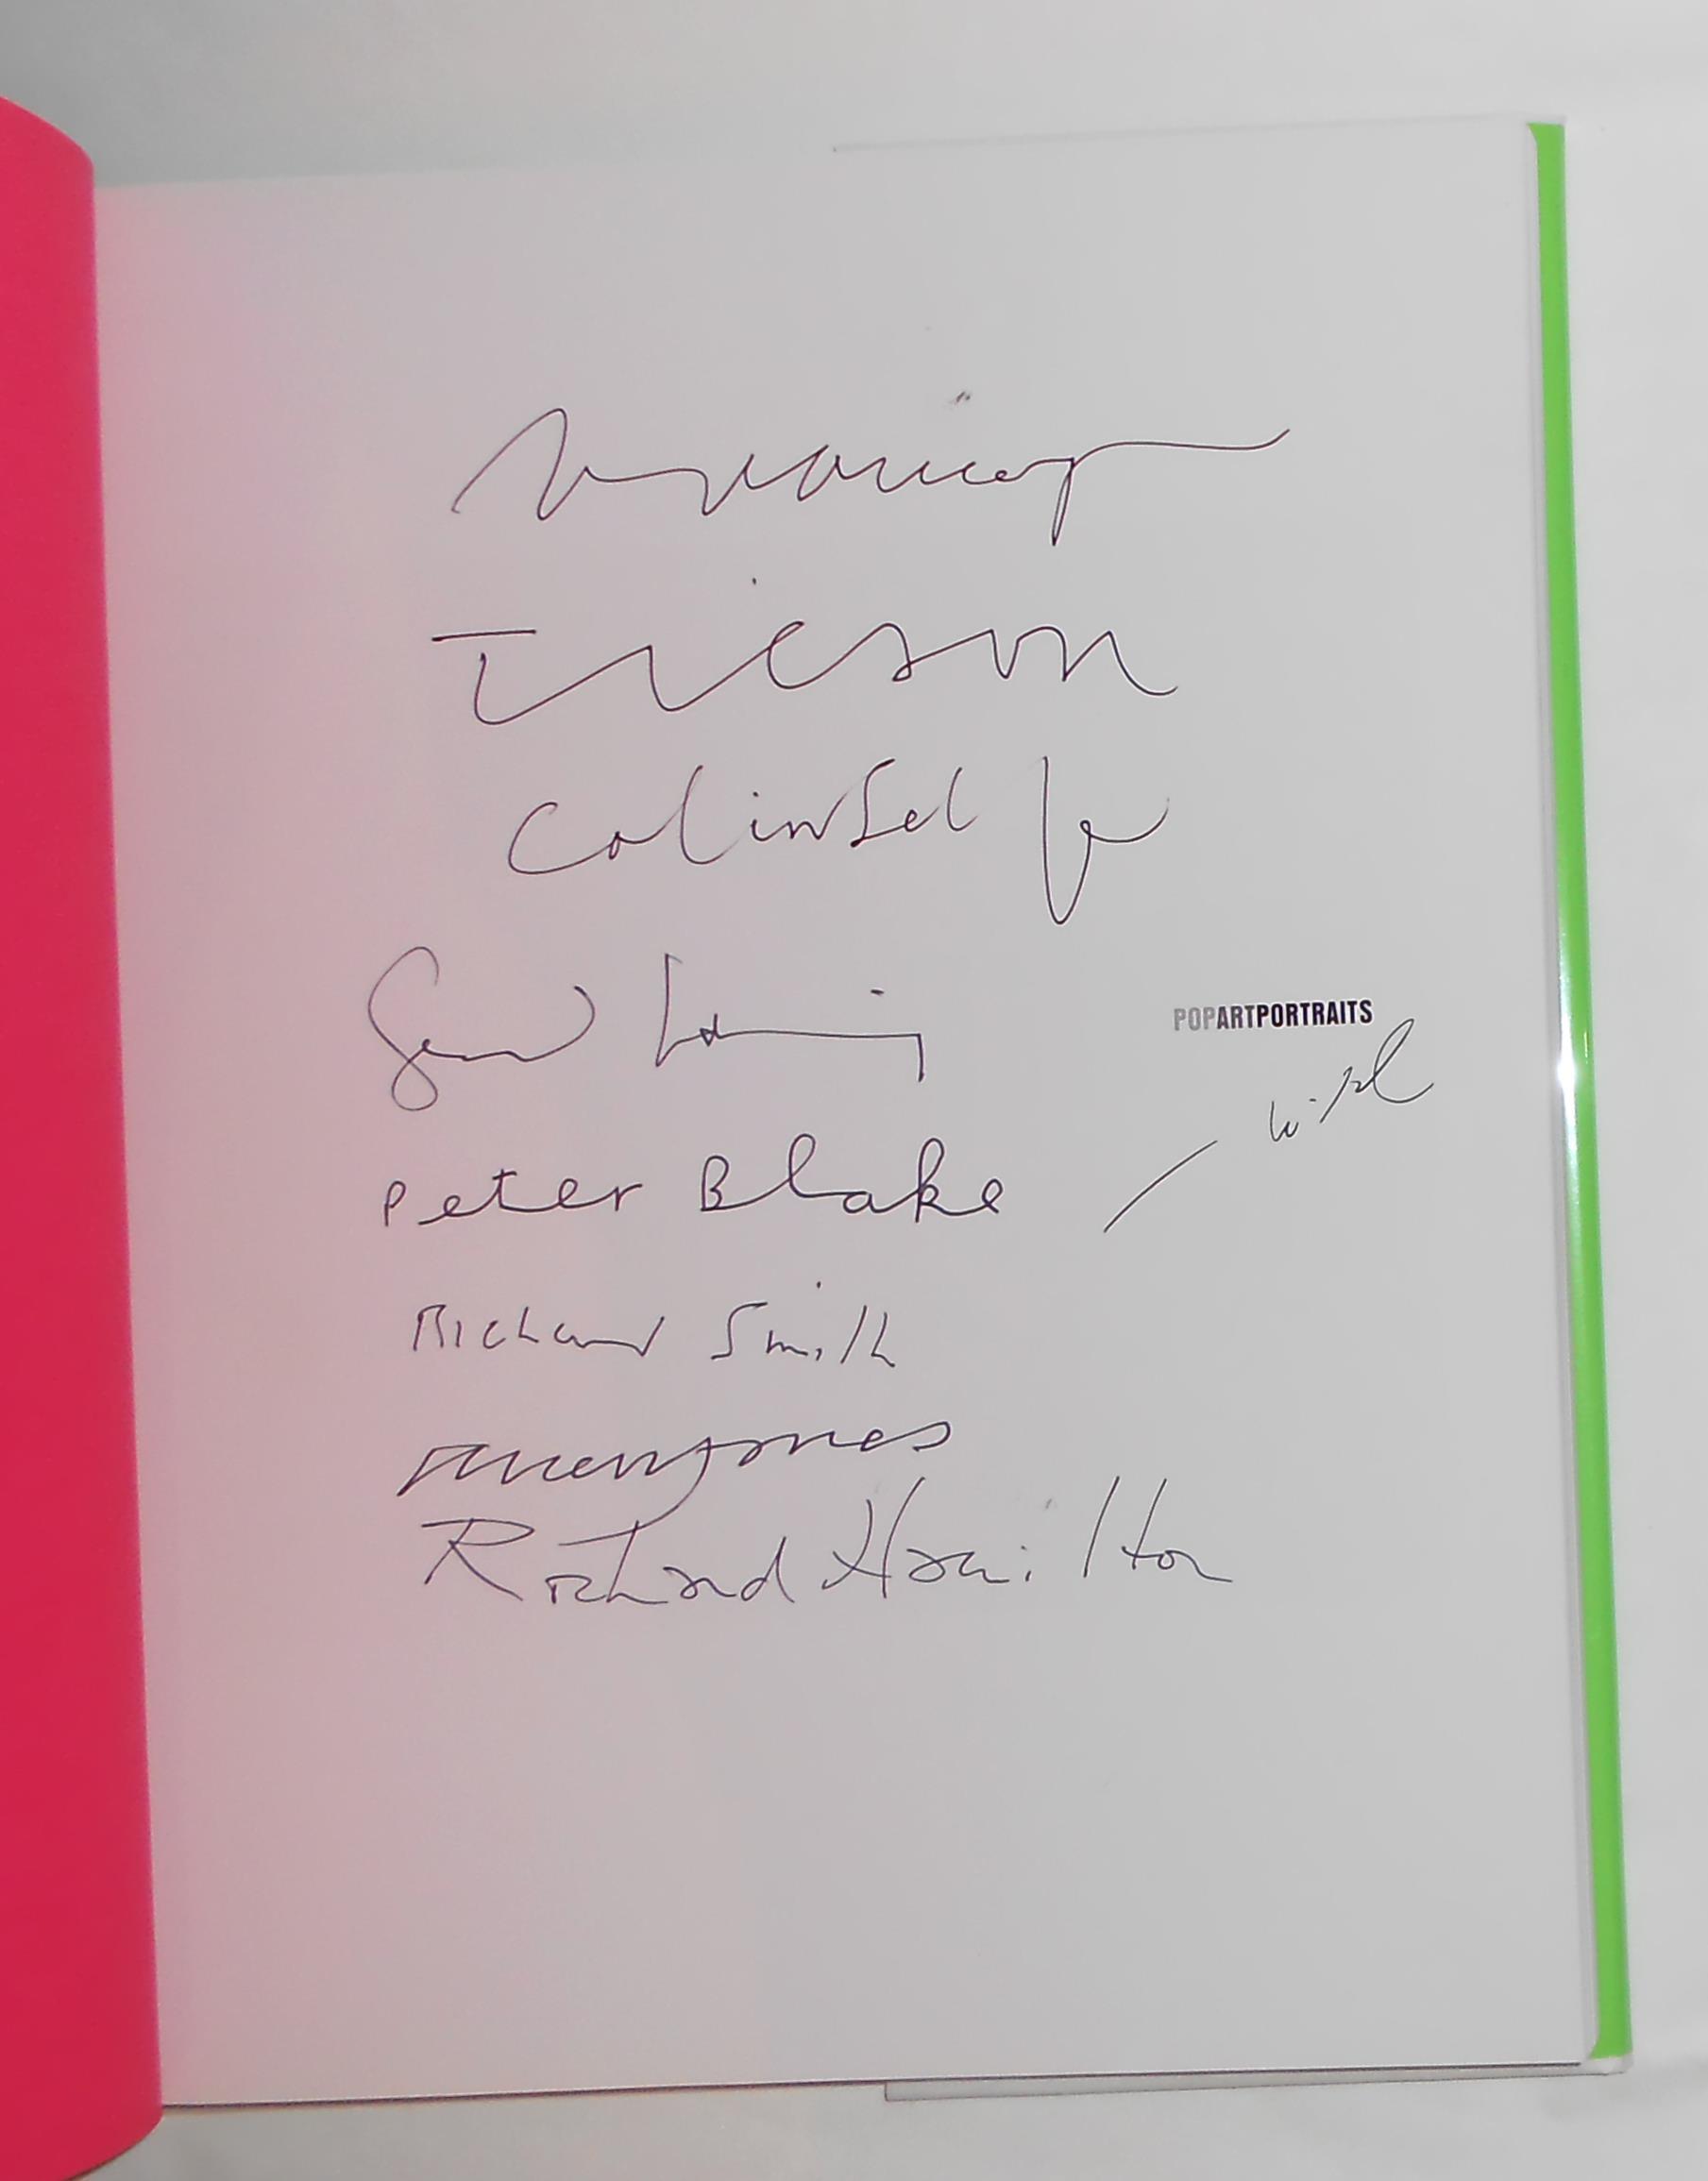 Tilson
Colin Self
Gerald Laing
POPARTPORTRAITS
Peter Blake
Richard Smith
allen jones
Richard Hamilton